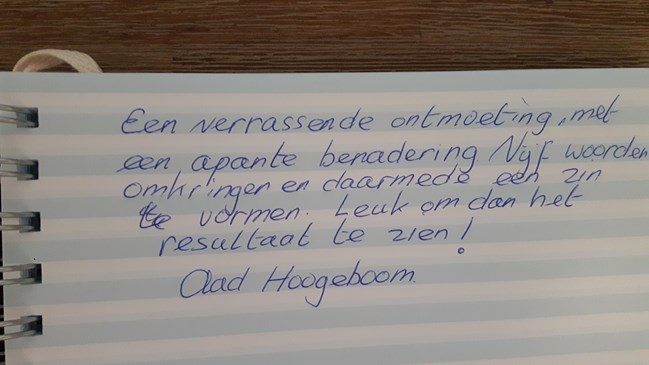 Een verrassende ontmoeting, met
een apante benadering Vijf woorden
omkringen en daarmede een zin
te vormen. Leuk om dan het
resultaat te zien!
Aad Hoogeboom.